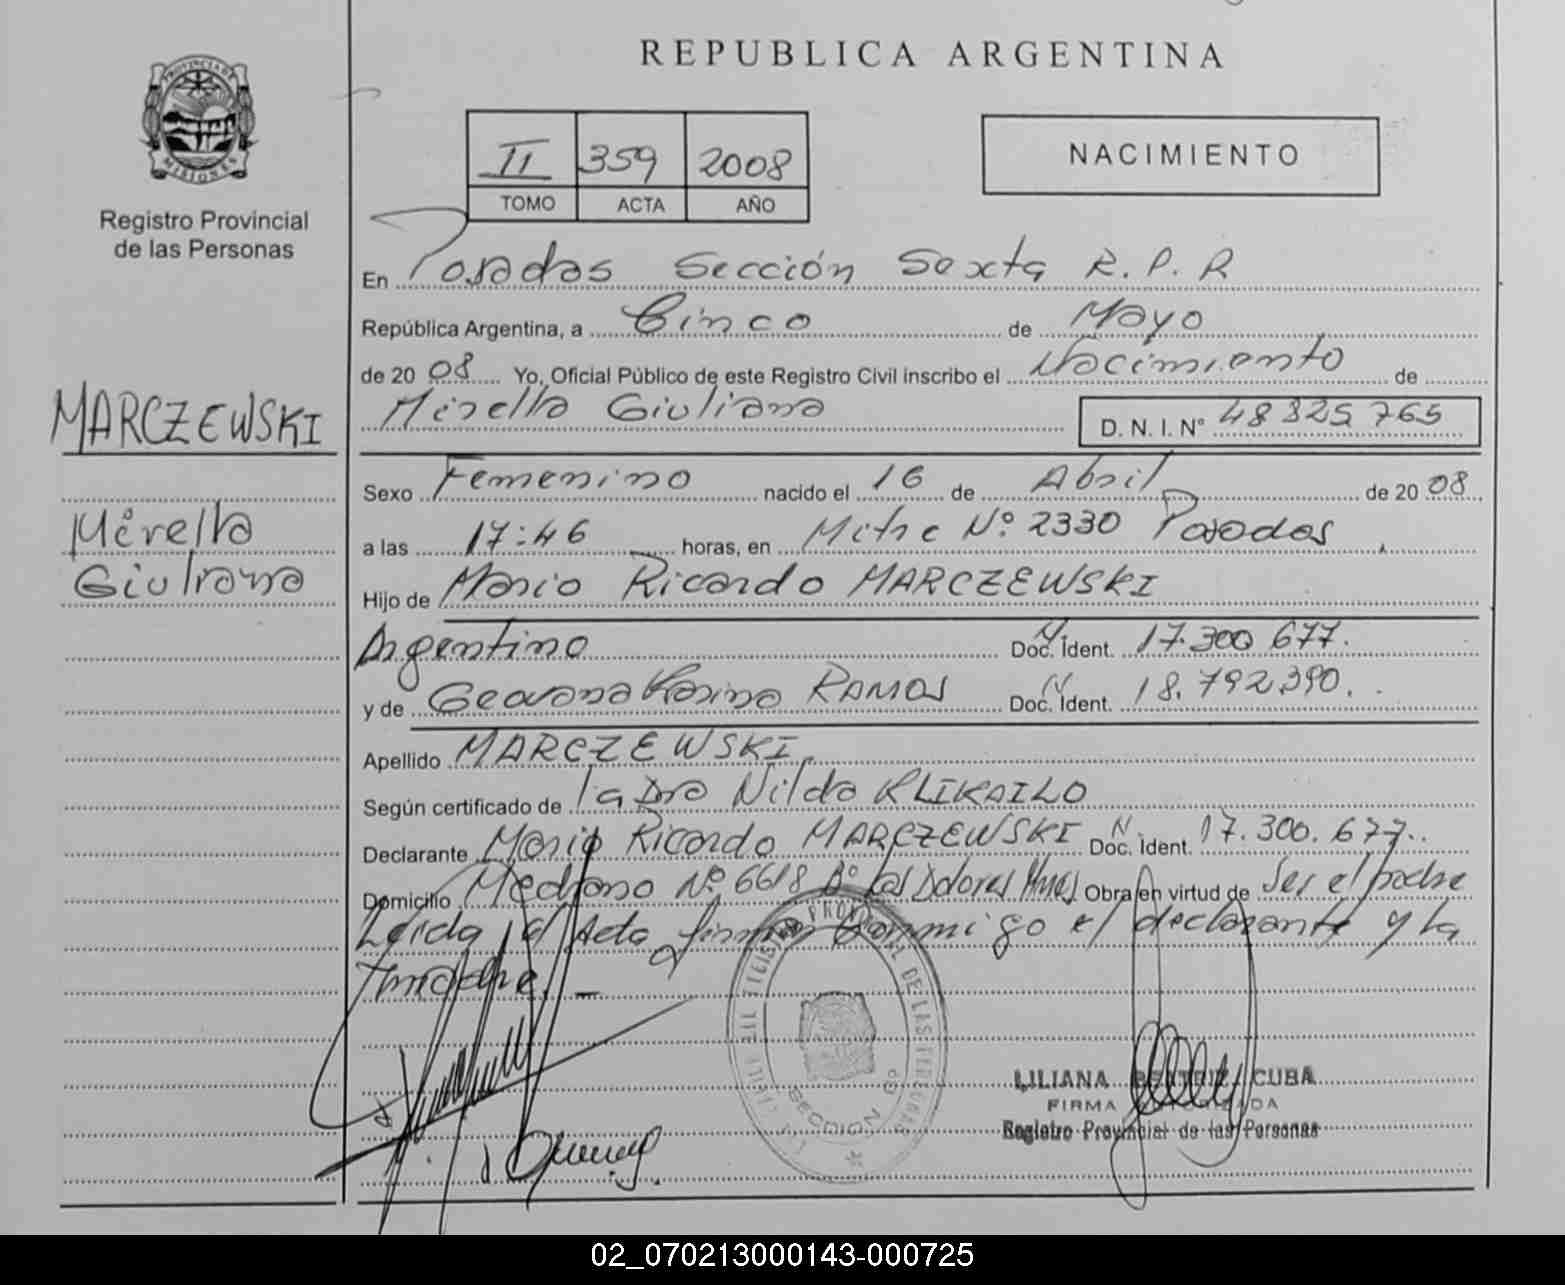 REPUBLICA ARGENTINA
PROVINCIA DE
MISIONES
Registro Provincial
de las Personas
II 359 2008
TOMO ACTA AÑO
NACIMIENTO
En Posadas Sección Sexta R.P.R
República Argentina, a Cinco de Mayo
de 2008 Yo, Oficial Público de este Registro Civil inscribo el Nacimiento de
Mirella Giuliana D. N. I. N° 48 325 765
MARCZEWSKI
Sexo Femenino nacido el 16 de Abril de 2008
Mirella
Giuliana
a las 17:46 horas, en Mitre N° 2330 Posadas
Hijo de Mario Ricardo MARCZEWSKI
Argentino Doc. Ident. 17.300 677.
y de Karina RAMOS Doc. Ident. 18.792.390.
Apellido MARCZEWSKI
Según certificado de la Dra Nilda KLIKAILO
Declarante Mario Ricardo MARCZEWSKI Doc. Ident. 17.300.677.
Domicilio Medrano N° 6618 B° Los Dolores Obra en virtud de Ser el padre
Leida el Acta firman conmigo el declarante y la
madre. _
SECCION 6°
LILIANA BEATRIZ CUBA
FIRMA AUTORIZADA
Registro Provincial de las Personas
02_070213000143-000725